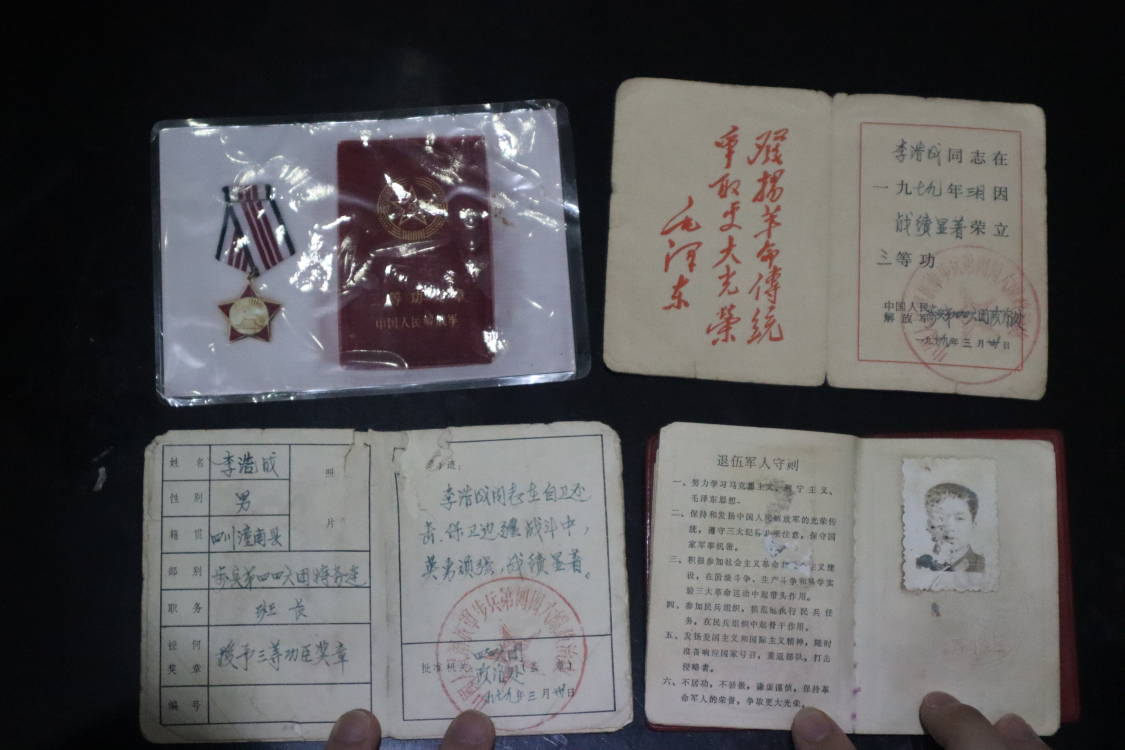 三等功
中国人民解放军
發揚革命傳統
爭取更大光榮
毛澤东
李浩成同志在
一九七九年三月因
战绩显著荣立
三等功
中国人民
解放军
步兵第四四六团政治处
一九七九年三月廿日
姓名 李浩成
照片
性别 男
籍贯 四川潼南县
部别 步兵第四四六团特务连
职务 班长
授予三等功臣奖章
奖章
编号
李浩成同志在自卫还
击、保卫边疆战斗中,
英勇顽强,战绩显著。
批准机关 四四六团
政治处
一九七九年三月廿日
退伍军人守则
一、努力学习马克思主义、列宁主义、
毛泽东思想。
二、保持和发扬中国人民解放军的光荣传
统,遵守三大纪律八项注意,保守国
家军事机密。
三、积极参加社会主义革命和社会主义建
设,在阶级斗争、生产斗争和科学实
验三大革命运动中起带头作用。
四、参加民兵组织,模范地执行民兵任
务,在民兵组织中起骨干作用。
五、发扬爱国主义和国际主义精神,随时
准备响应国家号召,重返部队,打击
侵略者。
六、不居功,不骄傲,谦虚谨慎,保持革
命军人的荣誉,争取更大光荣。